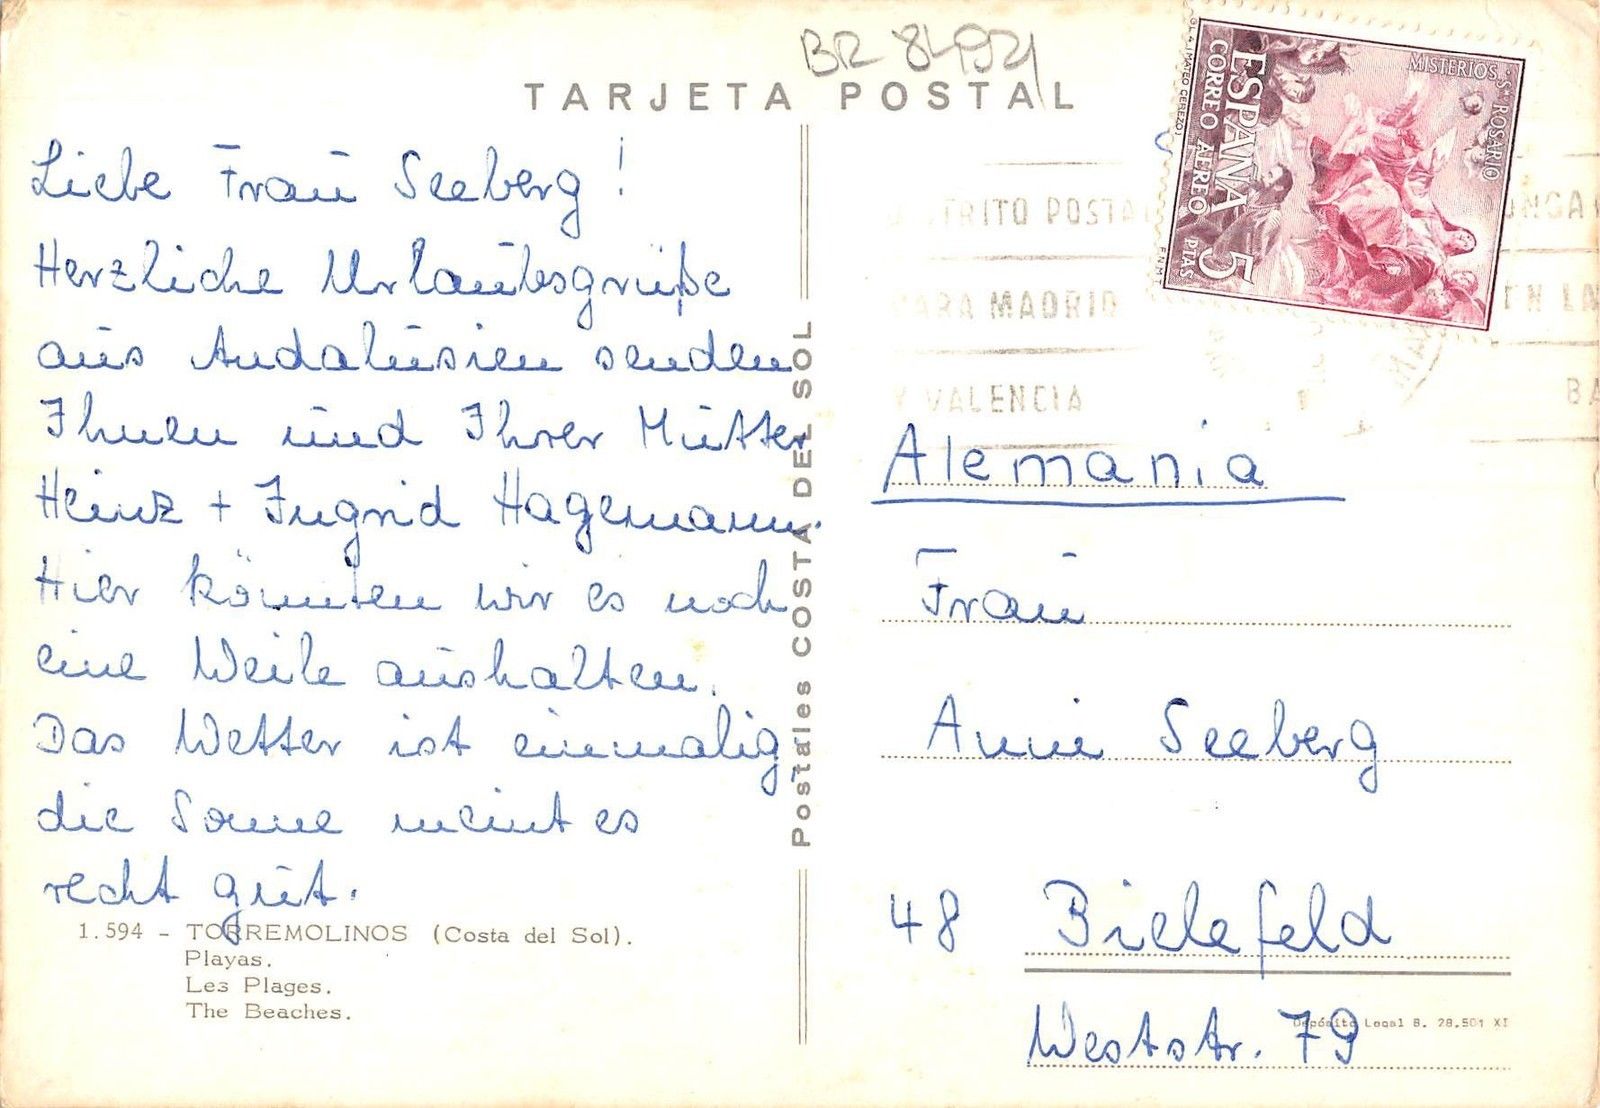 BR 8494
TARJETA POSTAL
Liebe Frau Seeberg!
Herzliche Urlaubsgrüße
aus Andalusien senden
Ihnen und Ihrer Mutter
Heinz + Ingrid Hagemann.
Hier könnten wir es noch
eine Weile aushalten.
Das Wetter ist einmalig
die Sonne meint es
recht gut.
1.594 - TORREMOLINOS (Costa del Sol).
Playas.
Les Plages.
The Beaches.
Postales COSTA DEL SOL
MISTERIOS · Sto ROSARIO
ESPAÑA 5 PTAS
CORREO AEREO
(MATEO CEREZO)
F.N.M.T.
DISTRITO POSTAL
PARA MADRID
Y VALENCIA
EN LA
BA
Alemania
Frau
Anni Seeberg
48 Bielefeld
Weststr. 79
Depósito Legal B. 28.501 XI